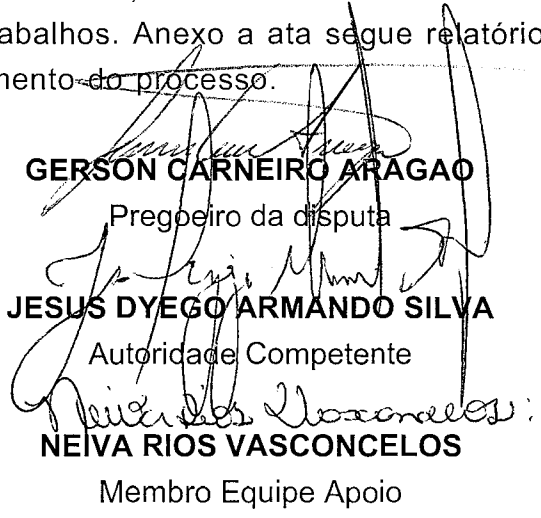 abalhos. Anexo a ata segue relatório
mento do processo.
GERSON CARNEIRO ARAGAO
Pregoeiro da disputa
JESUS DYEGO ARMANDO SILVA
Autoridade Competente
Neiva Rios Vasconcelos
NEIVA RIOS VASCONCELOS
Membro Equipe Apoio